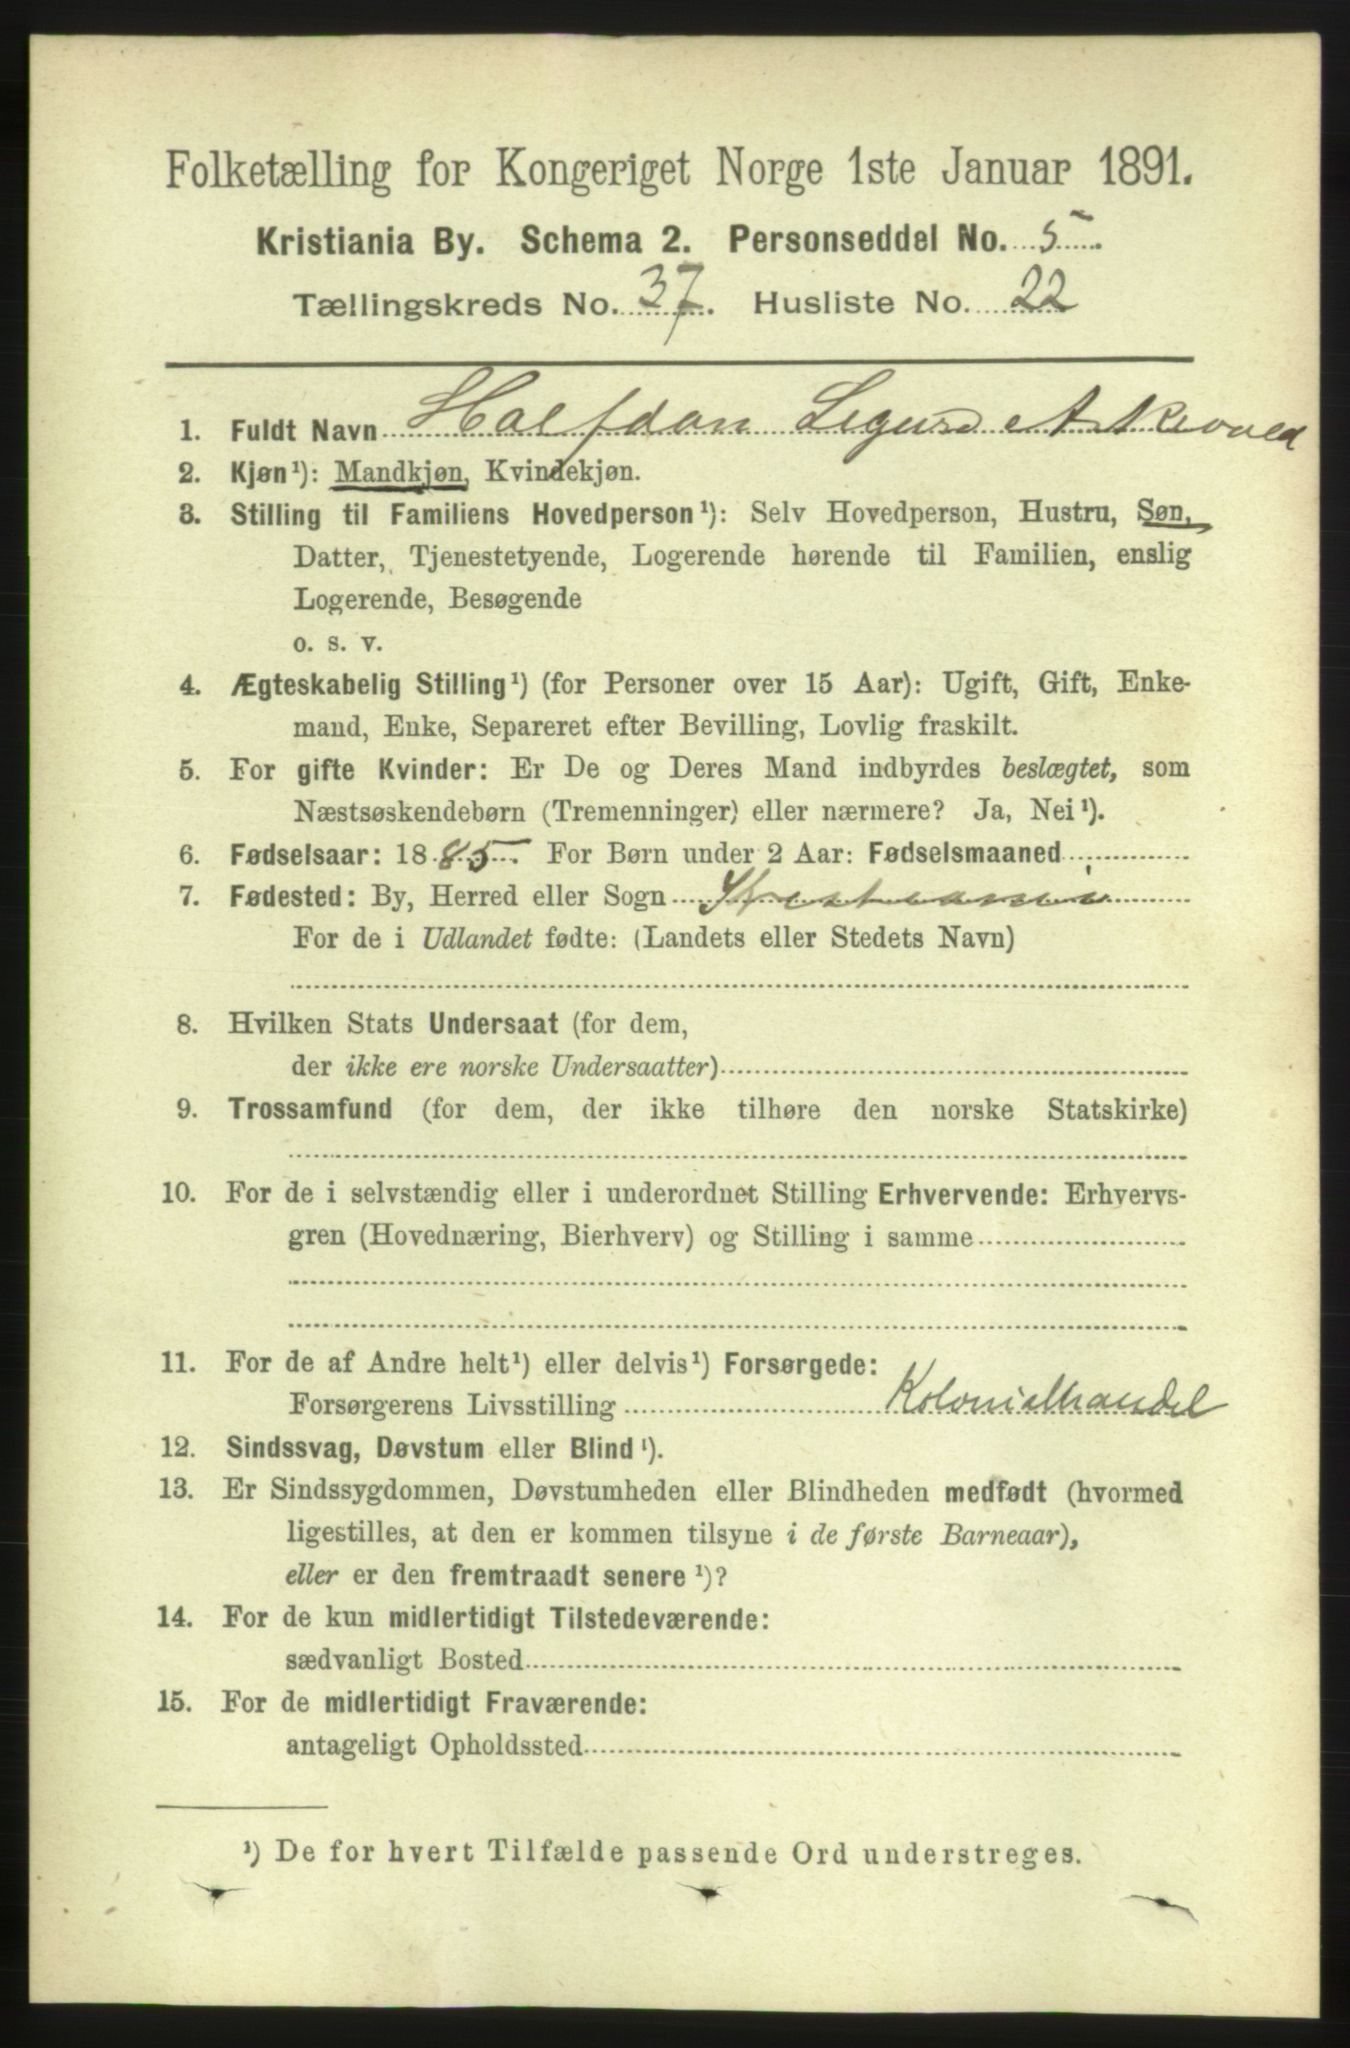 Folketælling for Kongeriget Norge 1ste Januar 1891.
Kristiania By. Schema 2. Personseddel No. 5.
Tællingskreds No. 37. Husliste No. 22
1. Fuldt Navn Halfdan Sigurd
2. Kjøn¹): Mandkjøn, Kvindekjøn.
3. Stilling til Familiens Hovedperson¹): Selv Hovedperson, Hustru, Søn,
Datter, Tjenestetyende, Logerende hørende til Familien, enslig
Logerende, Besøgende
o. s. v.
4. Ægteskabelig Stilling¹) (for Personer over 15 Aar): Ugift, Gift, Enke-
mand, Enke, Separeret efter Bevilling, Lovlig fraskilt.
5. For gifte Kvinder: Er De og Deres Mand indbyrdes beslægtet, som
Næstsøskendebørn (Tremenninger) eller nærmere? Ja, Nei¹).
6. Fødselsaar: 1885. For Børn under 2 Aar: Fødselsmaaned
7. Fødested: By, Herred eller Sogn Kristiania
For de i Udlandet fødte: (Landets eller Stedets Navn)
8. Hvilken Stats Undersaat (for dem,
der ikke ere norske Undersaatter)
9. Trossamfund (for dem, der ikke tilhøre den norske Statskirke)
10. For de i selvstændig eller i underordnet Stilling Erhvervende: Erhvervs-
gren (Hovednæring, Bierhverv) og Stilling i samme
11. For de af Andre helt¹) eller delvis¹) Forsørgede:
Forsørgerens Livsstilling Kolonialhandel
12. Sindssvag, Døvstum eller Blind¹).
13. Er Sindssygdommen, Døvstumheden eller Blindheden medfødt (hvormed
ligestilles, at den er kommen tilsyne i de første Barneaar),
eller er den fremtraadt senere¹)?
14. For de kun midlertidigt Tilstedeværende:
sædvanligt Bosted
15. For de midlertidigt Fraværende:
antageligt Opholdssted
¹) De for hvert Tilfælde passende Ord understreges.